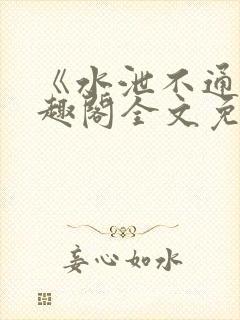 《水泄不通
趣阁全文免
妄心如水